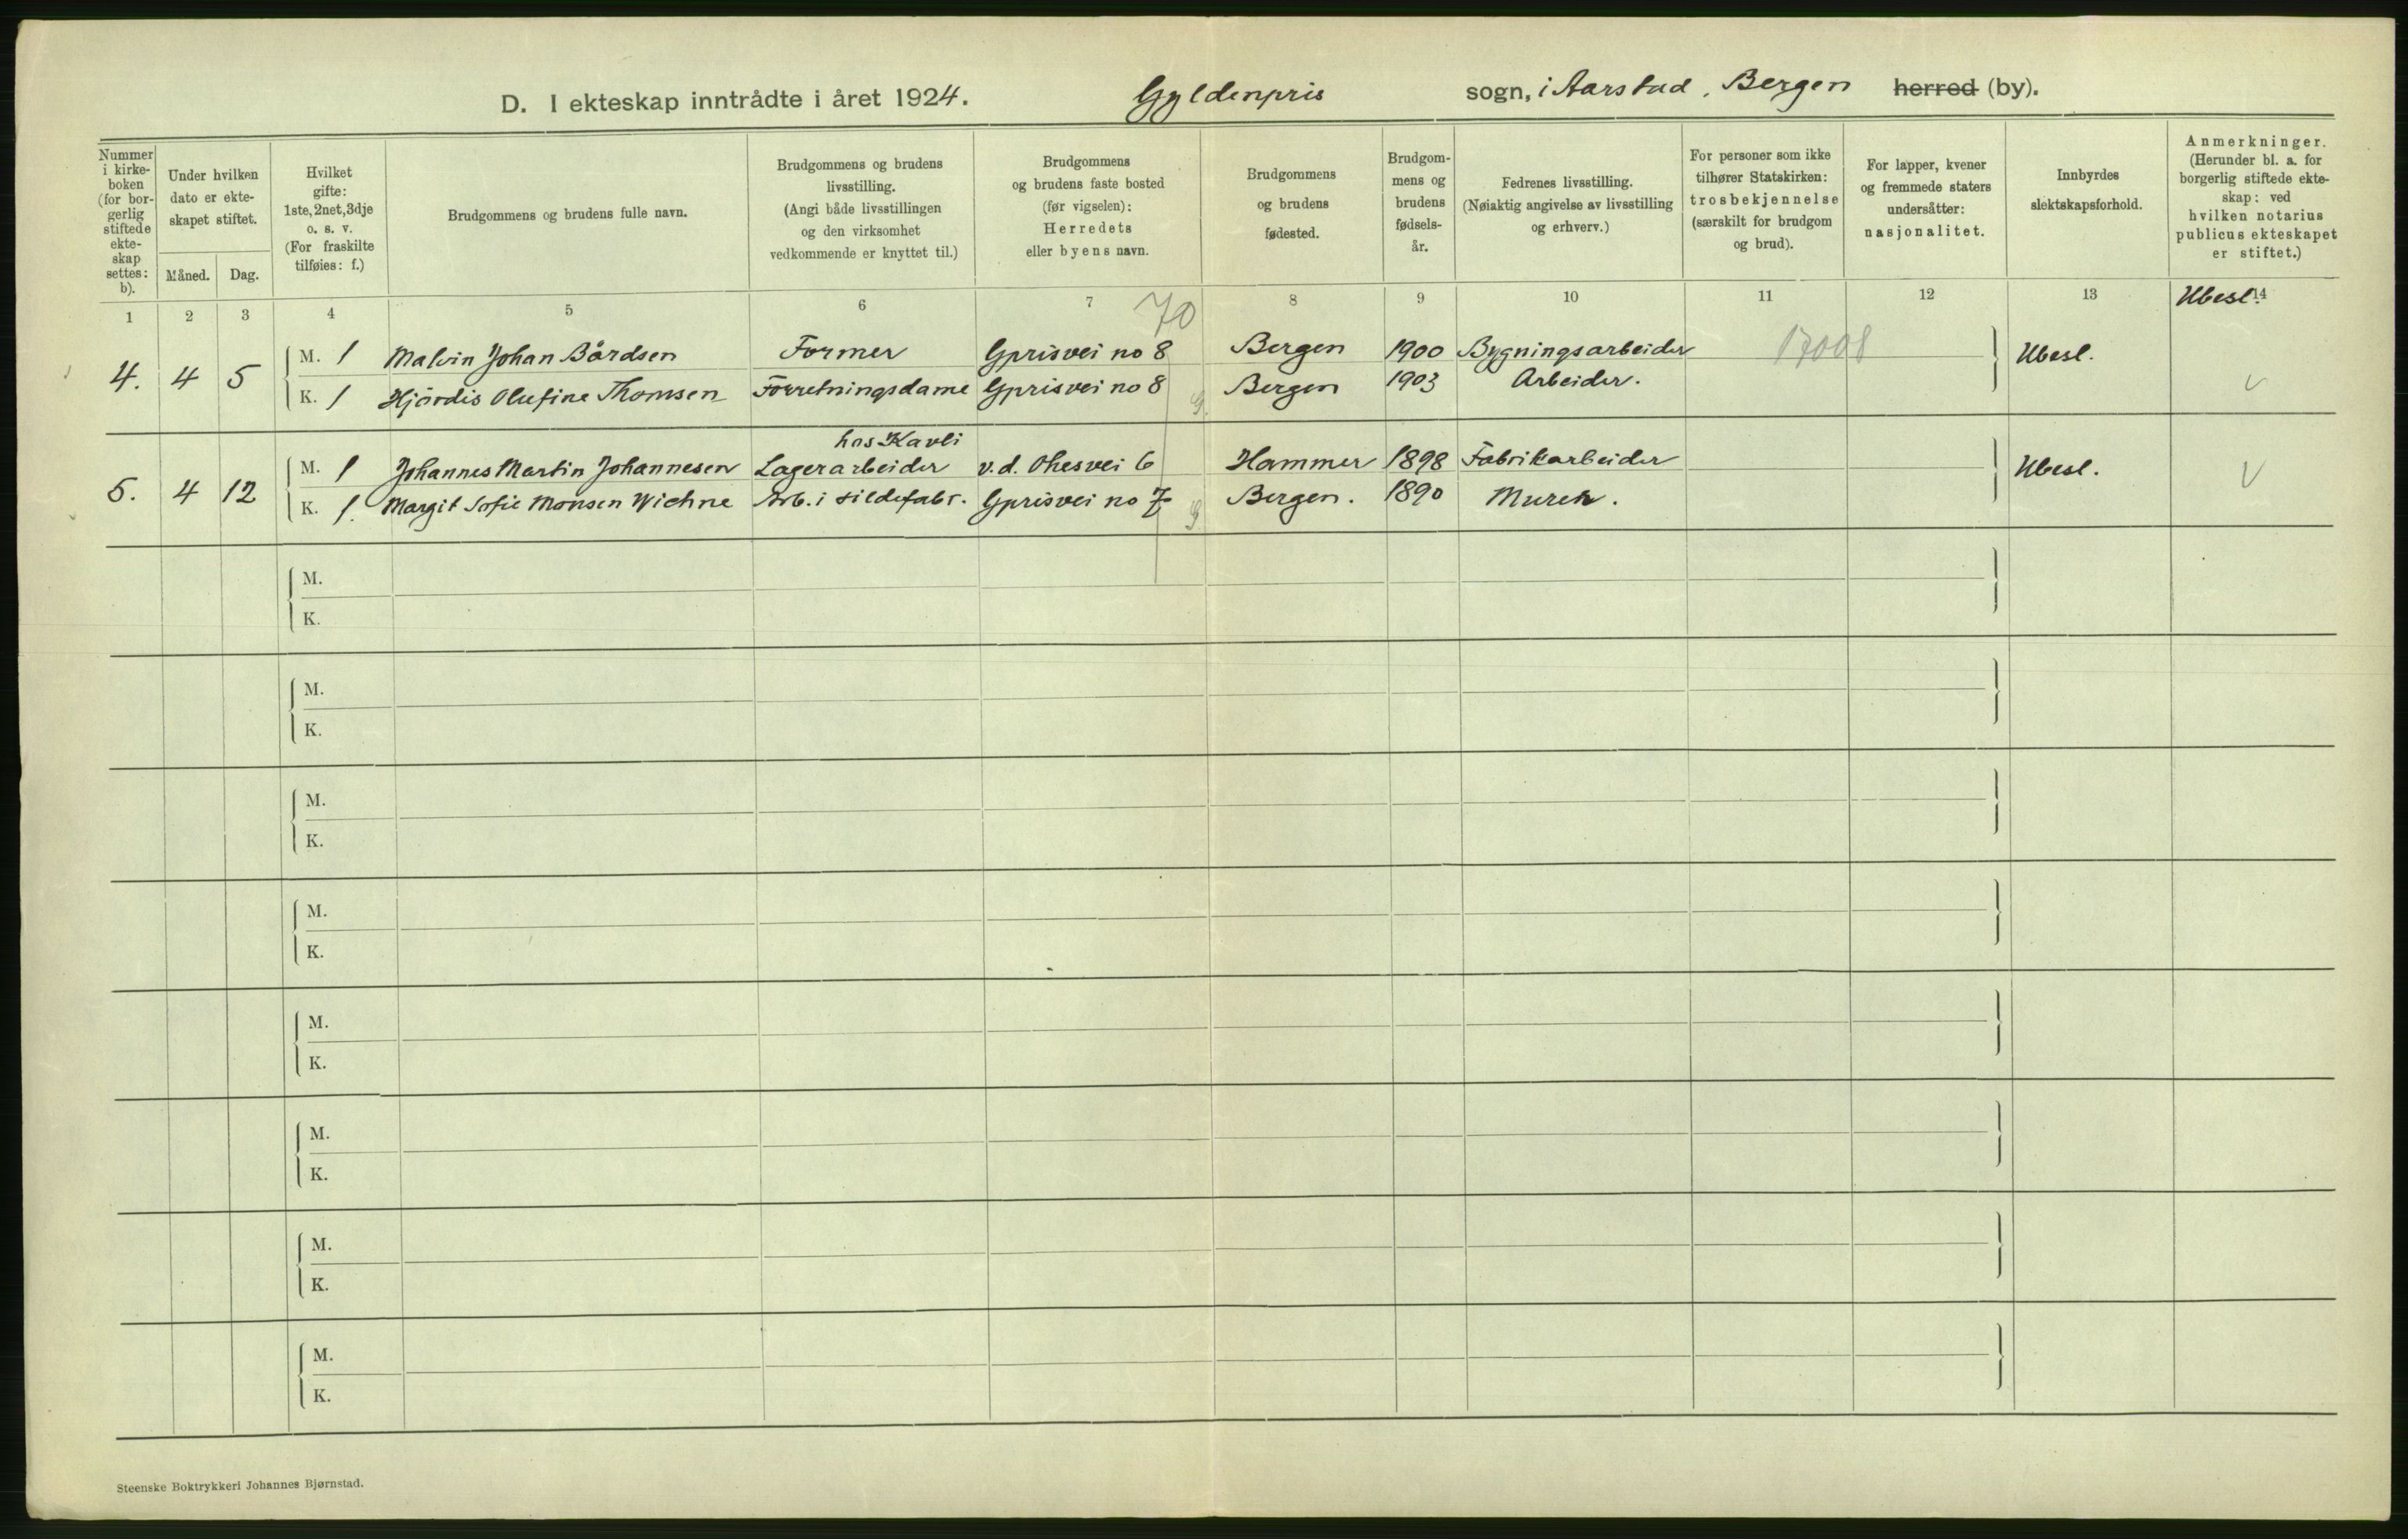 D. I ekteskap inntrådte i året 1924. Gyldenpris sogn, i Aarstad, Bergen herred (by).
Nummer i kirke-boken (for bor-gerlig stiftede ekte-skap settes: b).
Under hvilken dato er ekte-skapet stiftet.
Måned. Dag.
Hvilket gifte: 1ste, 2net, 3dje o. s. v. (For fraskilte tilføies: f.)
Brudgommens og brudens fulle navn.
Brudgommens og brudens livsstilling. (Angi både livsstillingen og den virksomhet vedkommende er knyttet til.)
Brudgommens og brudens faste bosted (før vigselen): Herredets eller byens navn.
Brudgommens og brudens fødested.
Brudgom-mens og brudens fødsels-år.
Fedrenes livsstilling. (Nøiaktig angivelse av livsstilling og erhverv.)
For personer som ikke tilhører Statskirken: trosbekjennelse (særskilt for brudgom og brud).
For lapper, kvener og fremmede staters undersåtter: nasjonalitet.
Innbyrdes slektskapsforhold.
Anmerkninger. (Herunder bl. a. for borgerlig stiftede ekte-skap: ved hvilken notarius publicus ekteskapet er stiftet.)
1 2 3 4 5 6 7 8 9 10 11 12 13 14
70 Ubesl.
4. 4 5 M. 1 Malvin Johan Bårdsen Former Gprisvei no 8 Bergen 1900 Bygningsarbeider 17008 Ubesl.
K. 1 Hjördis Olufine Thomsen Forretningsdame Gprisvei no 8 Bergen 1903 Arbeider.
hos Kavli
5. 4 12 M. 1 Johannes Martin Johannesen Lagerarbeider v.d. Ohesvei 6 Hammer 1898 Fabrikarbeider Ubesl.
K. 1. Margit Sofie Monsen Wichne Arb. i sildefabr. Gprisvei no 7 Bergen. 1890 Murer.
M.
K.
M.
K.
M.
K.
M.
K.
M.
K.
M.
K.
M.
K.
M.
K.
Steenske Boktrykkeri Johannes Bjørnstad.